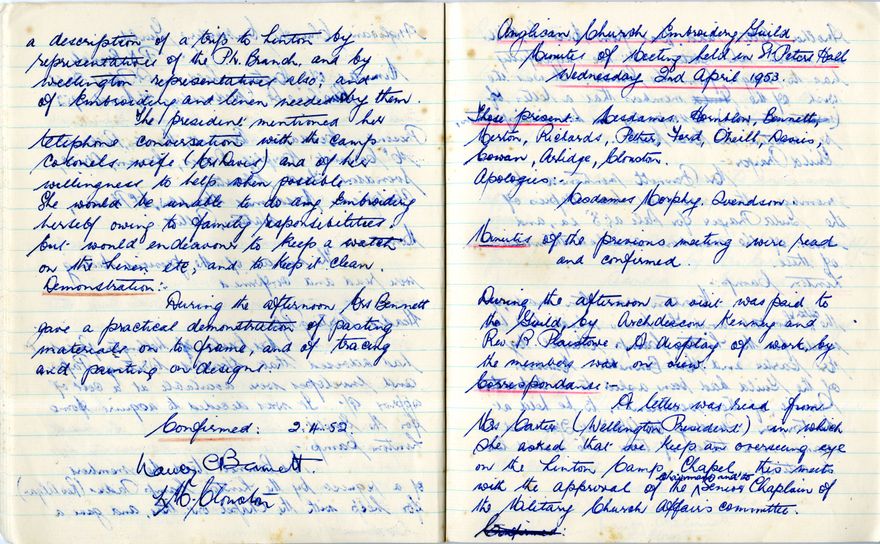 a description of a trip to Linton by
representatives of the P.N. Branch, and by
Wellington representatives also; and
of Embroidery and linen needed by them.
The president mentioned her
telephone conversation with the camp
Colonels wife (Mrs Davis) and of her
willingness to help when possible.
She would be unable to do any Embroidery
herself owing to family responsibilities.
but would endeavour to keep a watch
on the linen etc, and to keep it clean.
Demonstration:-
During the afternoon Mrs Bennett
gave a practical demonstration of pasting
materials on to frame, and of tracing
and painting on designs.
Confirmed: 2.4.52
Bennett.
Clouston
Anglican Church Embroidery Guild
Minutes of Meeting held in St Peters Hall
Wednesday 2nd April 1953
Those present:- Mesdames. Hornblow, Bennett,
Merton, Richards, Pether, Ford, O'Neill, Davis,
Cowan, Arlidge, Clouston.
Apologies
Mesdames Morphy. Svendson
Minutes of the previous meeting were read
and confirmed.
During the afternoon a visit was paid to
the Guild, by Archdeacon Kenney and
Rev. R. Plaistowe. A display of work, by
the members was on view.
Correspondance:-
A letter was read from
Mrs Carter (Wellington President) in which
she asked that we keep an overseeing eye
on the Linton Camp Chapel, this meets
with the approval of the chairman and to Senior Chaplain of
the Military Church Affairs committee.
Confirmed: